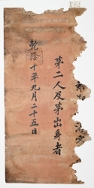 第二人及第出身者
乾隆十年九月二十五日